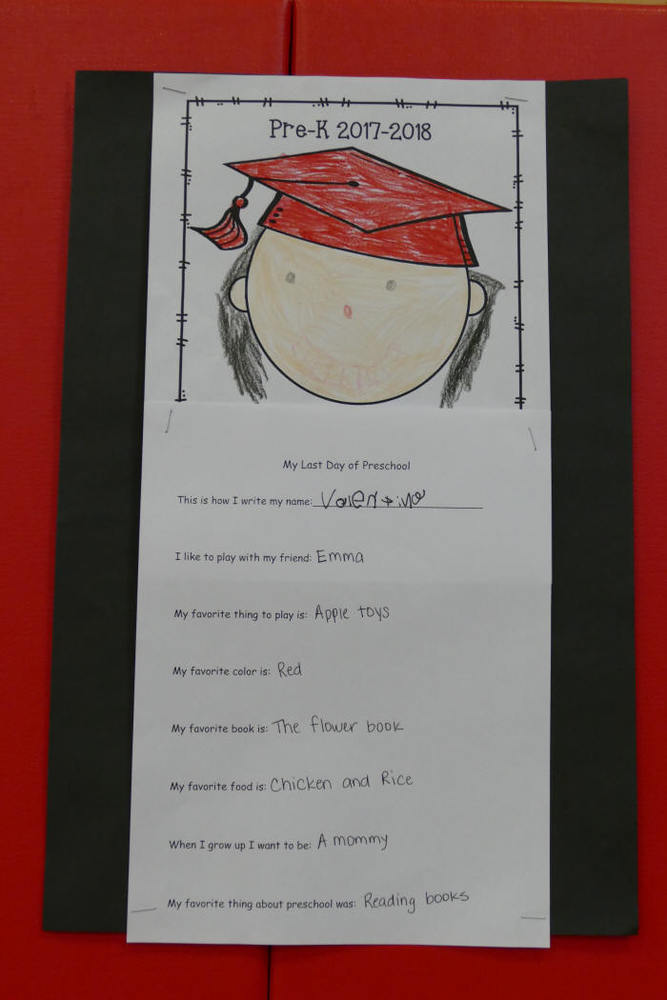 Pre-K 2017-2018
My Last Day of Preschool
This is how I write my name: Valentina
I like to play with my friend: Emma
My favorite thing to play is: Apple toys
My favorite color is: Red
My favorite book is: The flower book
My favorite food is: Chicken and Rice
When I grow up I want to be: A mommy
My favorite thing about preschool was: Reading books